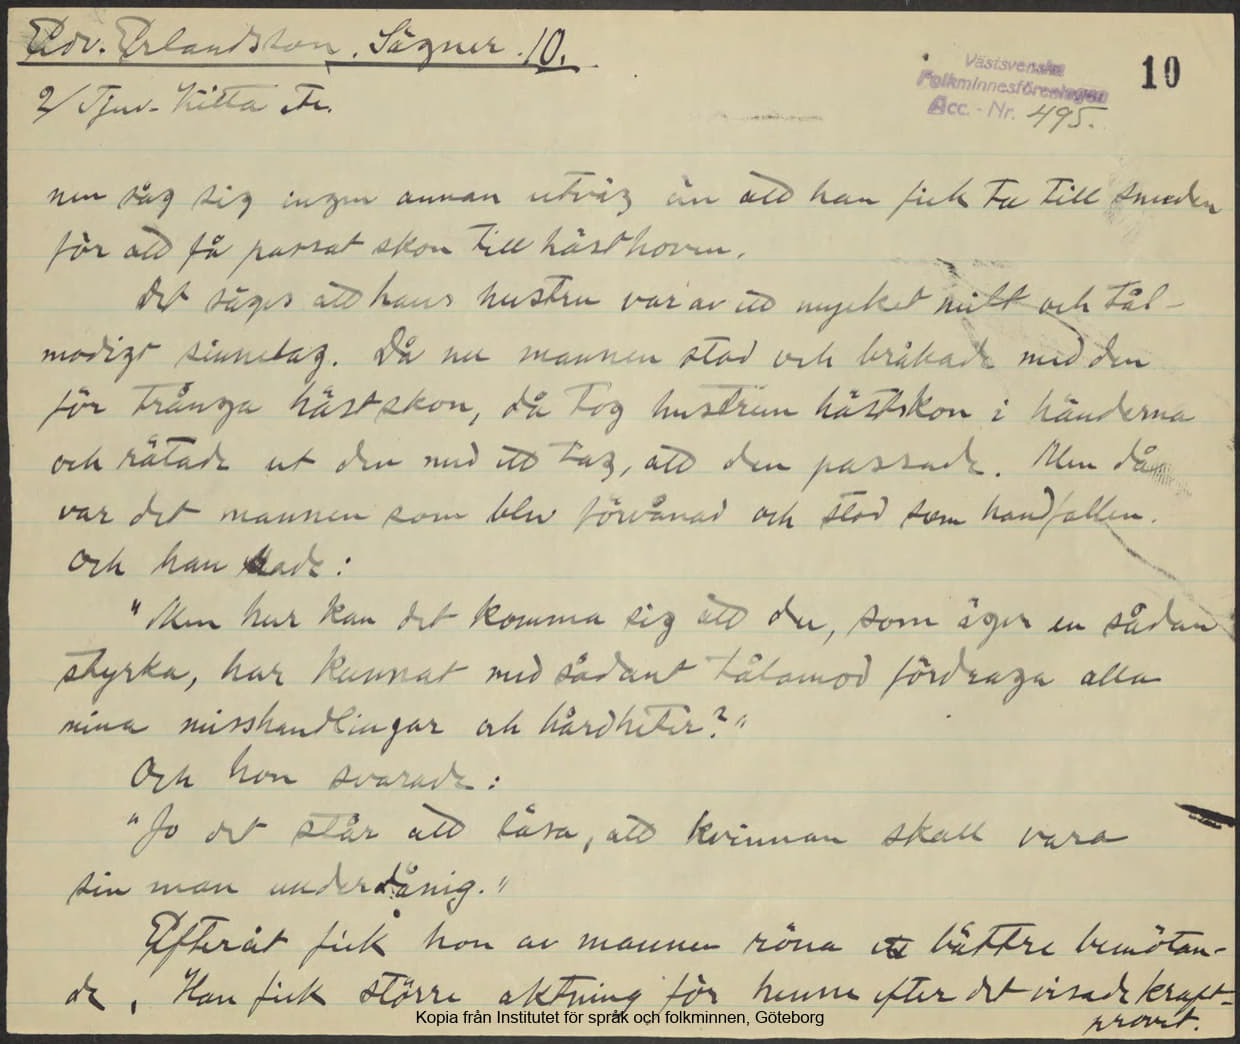 Edv. Erlandsson. Sägner. 10.
Västsvenska
Folkminnesföreningen
Acc. - Nr. 495.
10
2/ Tjuv-Kitta Fr.
nen såg sig ingen annan utväg än att han fick ta till smeden
för att få passat skon till hästhoven.
Det säges att hans hustru var av ett mycket milt och tål-
modigt sinnelag. Då nu mannen stod och bråkade med den
för trånga hästskon, då tog hustrun hästskon i händerna
och rätade ut den med ett tag, att den passade. Men då
var det mannen som blev förvånad och stod som handfallen.
Och han sade:
"Men hur kan det komma sig att du, som äger en sådan
styrka, har kunnat med sådant tålamod fördraga alla
mina misshandlingar och hårdheter?"
Och hon svarade:
"Jo det står att läsa, att kvinnan skall vara
sin man underdånig."
Efteråt fick hon av mannen röna ett bättre bemötan-
de, Han fick större aktning för henne efter det visade kraft-
provet.
Kopia från Institutet för språk och folkminnen, Göteborg